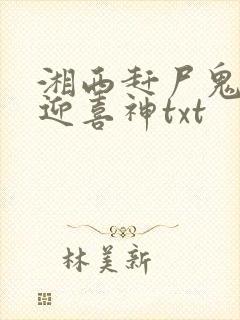 湘西赶尸鬼
迎喜神txt
林美新